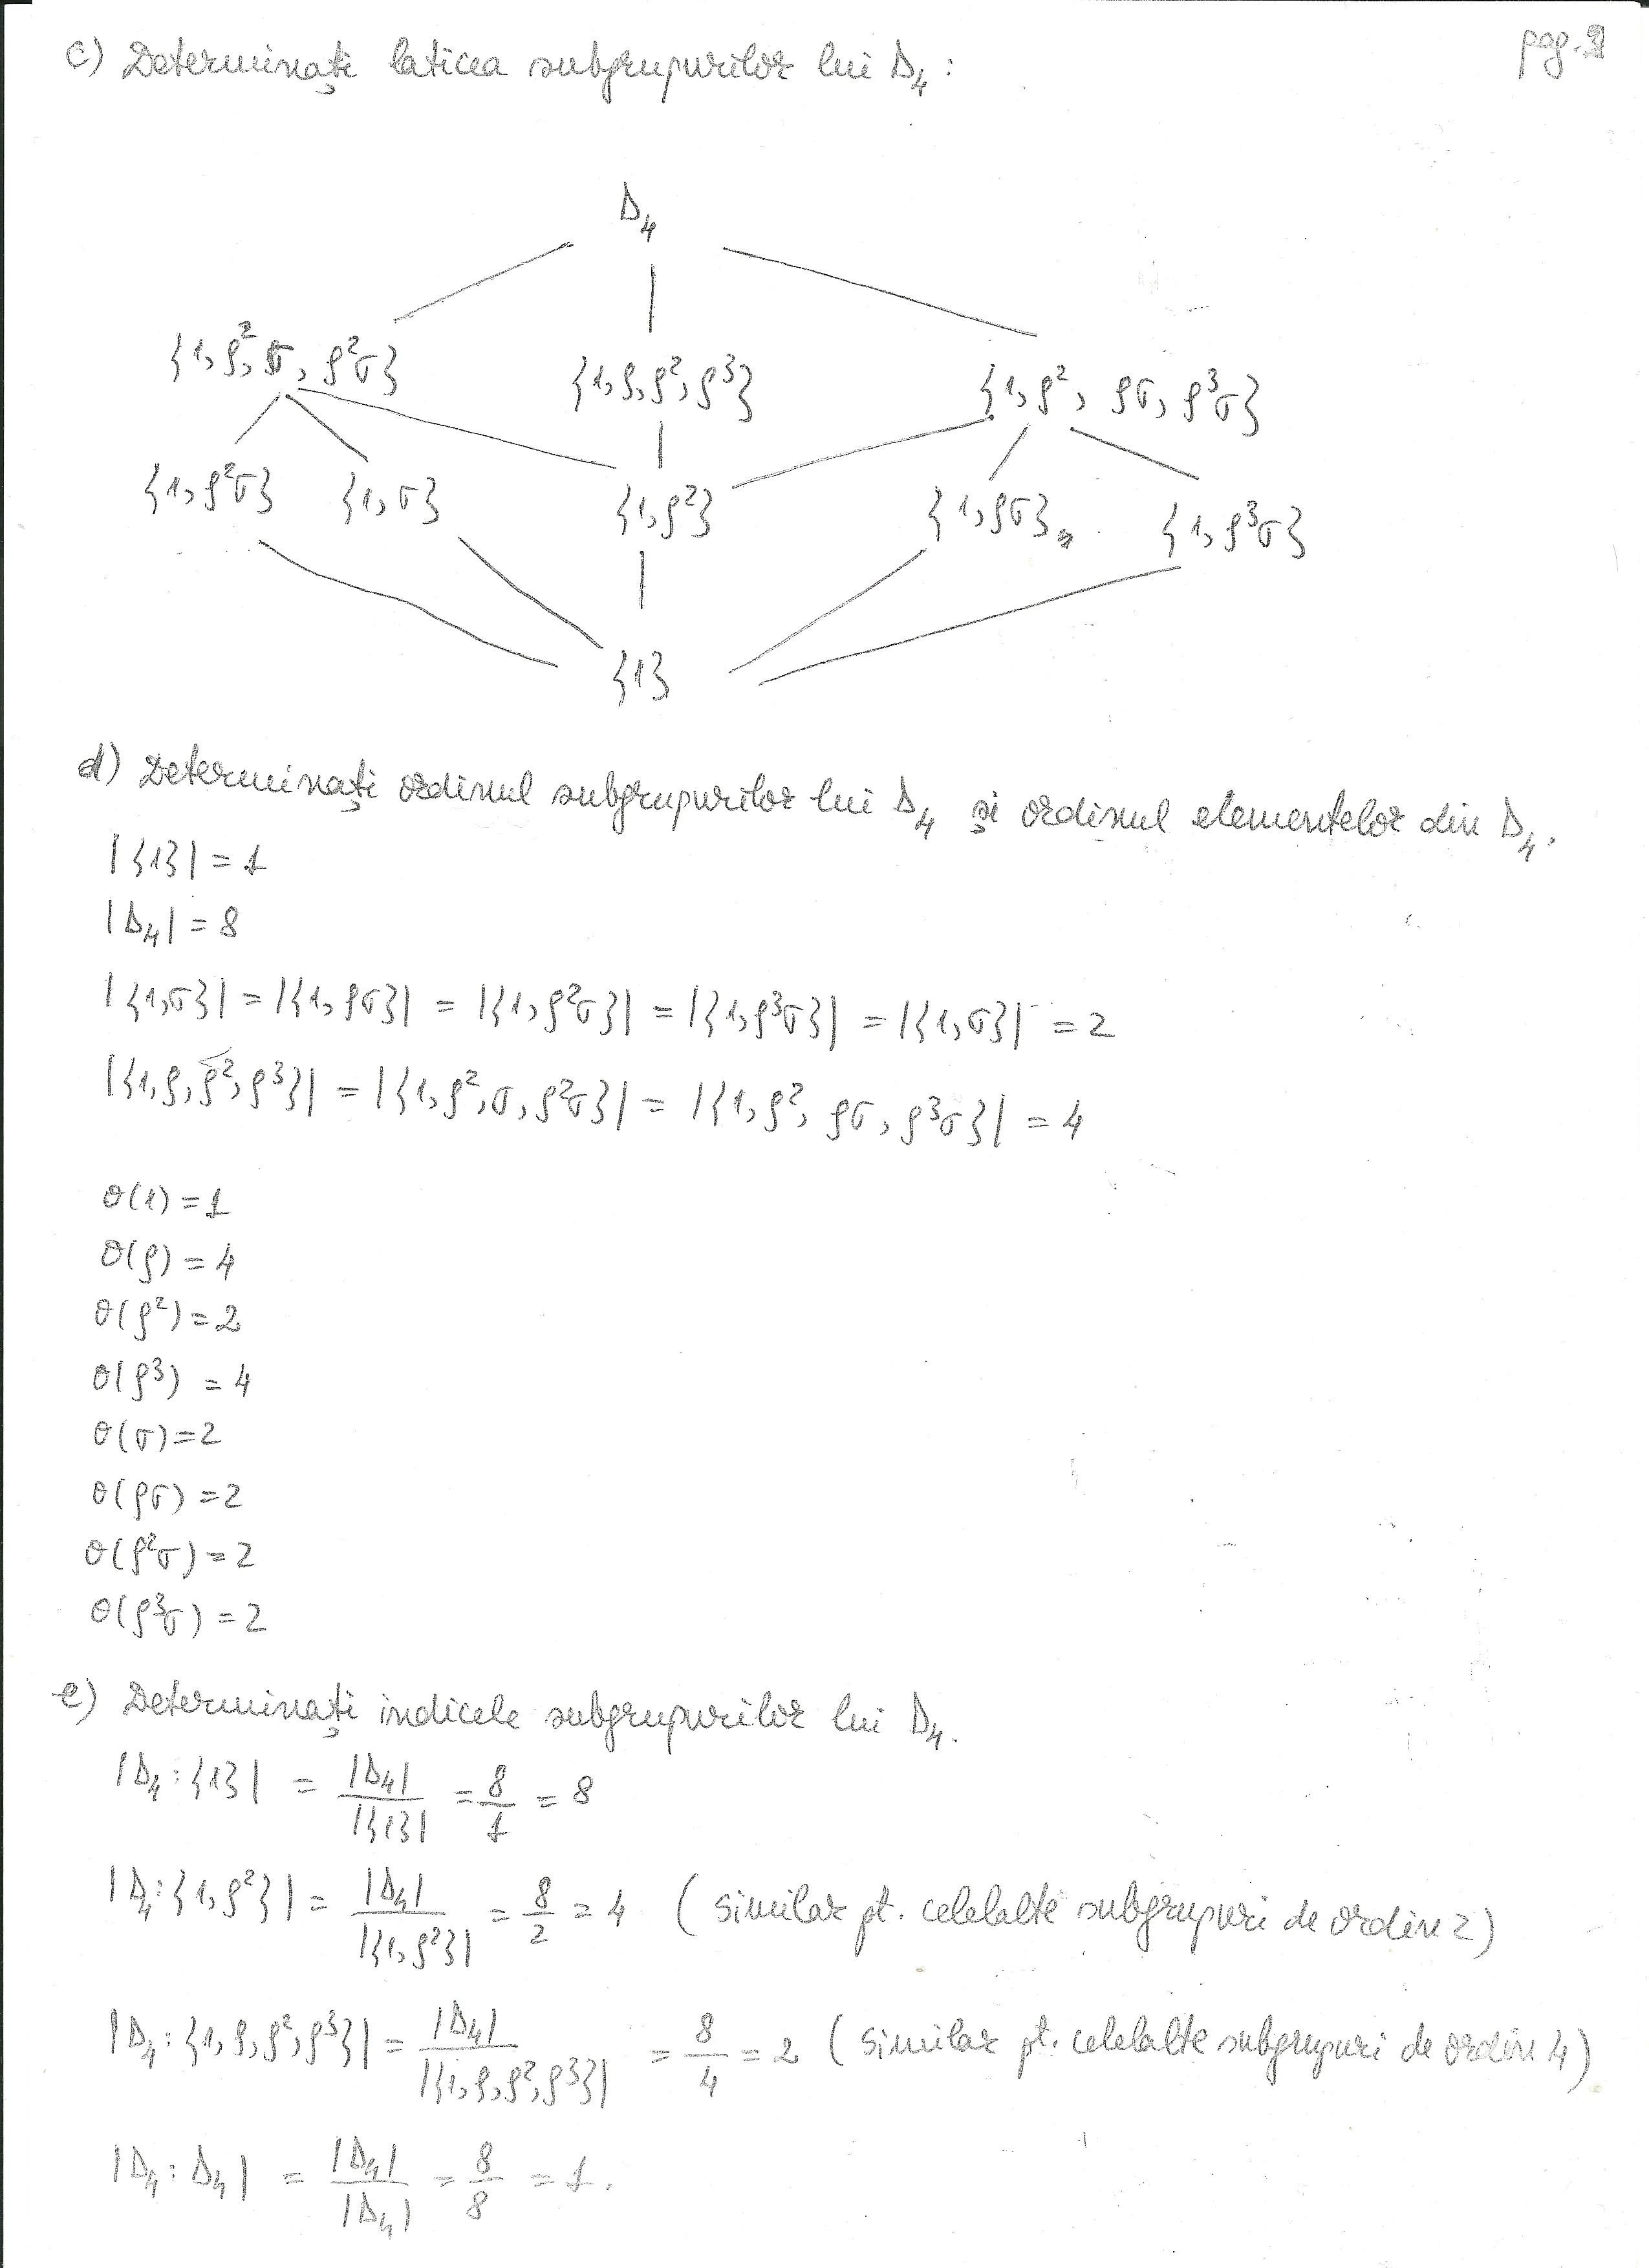 c) Determinați laticea subgrupurilor lui D₄ :
pag. 2
D₄
{1, ρ², σ, ρ²σ} {1, ρ, ρ², ρ³} {1, ρ², ρσ, ρ³σ}
{1, ρ²σ} {1, σ} {1, ρ²} {1, ρσ} {1, ρ³σ}
{1}
d) Determinați ordinul subgrupurilor lui D₄ și ordinul elementelor din D₄.
|{1}| = 1
|D₄| = 8
|{1, σ}| = |{1, ρσ}| = |{1, ρ²σ}| = |{1, ρ³σ}| = |{1, σ}| = 2
|{1, ρ, ρ², ρ³}| = |{1, ρ², σ, ρ²σ}| = |{1, ρ², ρσ, ρ³σ}| = 4
θ(1) = 1
θ(ρ) = 4
θ(ρ²) = 2
θ(ρ³) = 4
θ(σ) = 2
θ(ρσ) = 2
θ(ρ²σ) = 2
θ(ρ³σ) = 2
e) Determinați indicele subgrupurilor lui D₄.
|D₄ : {1}| = |D₄| / |{1}| = 8/1 = 8
|D₄ : {1, ρ²}| = |D₄| / |{1, ρ²}| = 8/2 = 4 (similar pt. celelalte subgrupuri de ordin 2)
|D₄ : {1, ρ, ρ², ρ³}| = |D₄| / |{1, ρ, ρ², ρ³}| = 8/4 = 2 (similar pt. celelalte subgrupuri de ordin 4)
|D₄ : D₄| = |D₄| / |D₄| = 8/8 = 1.